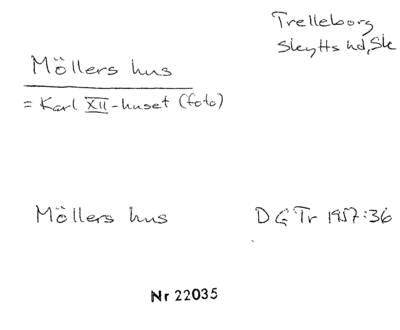 Trelleborg
Skytts hd, Sk
Möllers hus
= Karl XII-huset (foto)
Möllers hus DG Tr 1957:36
Nr 22035